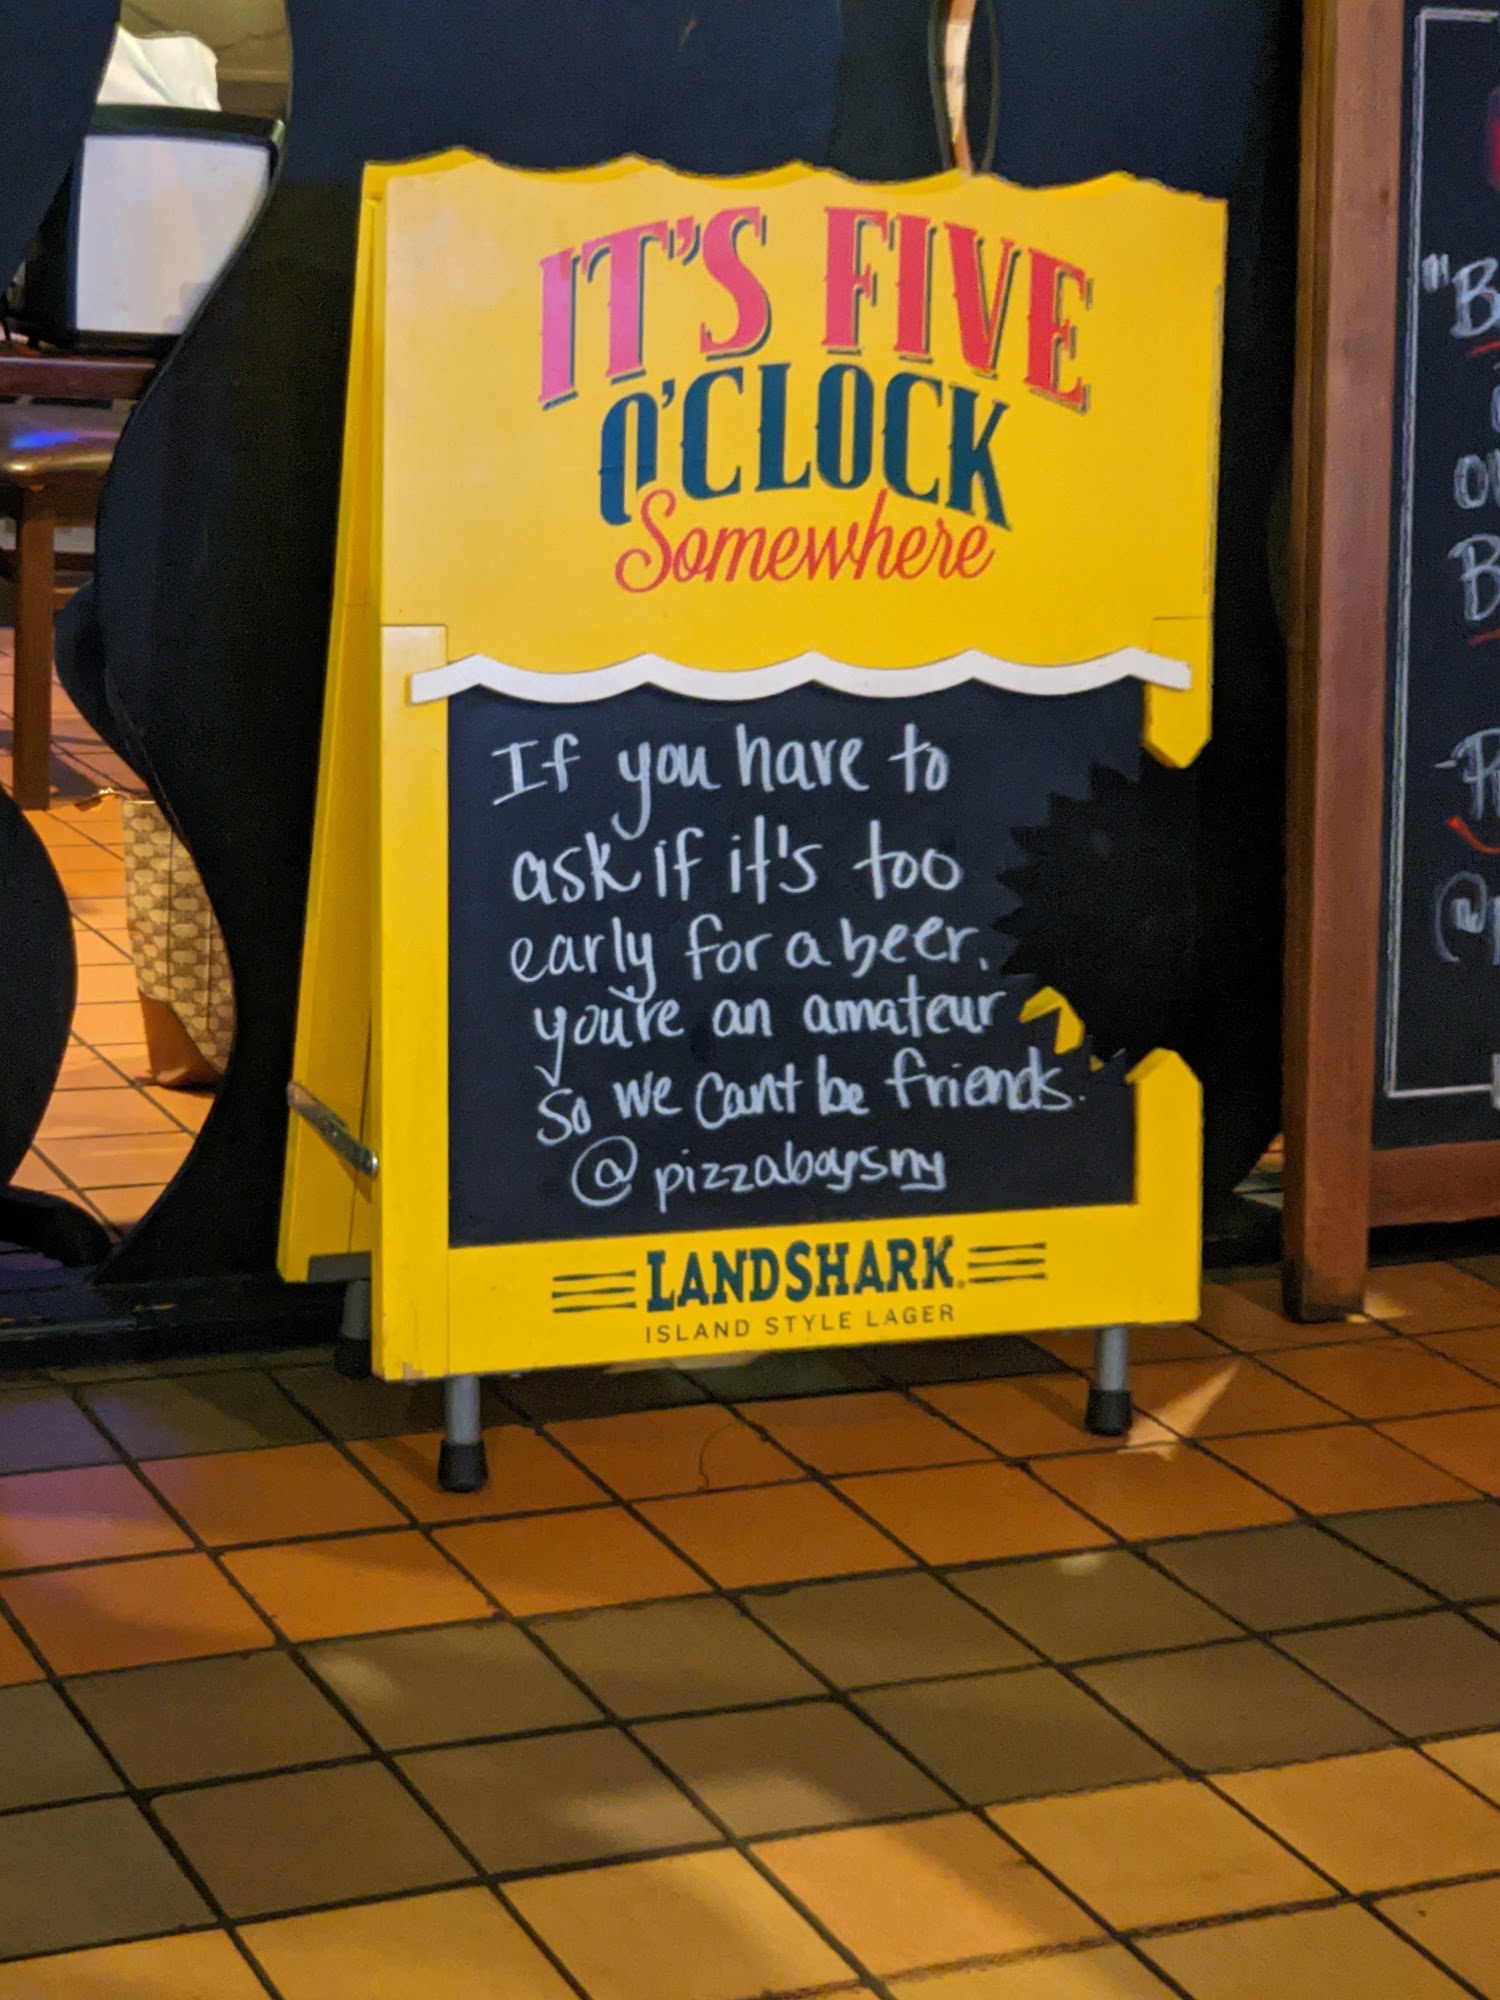 IT'S FIVE
O'CLOCK
Somewhere
If you have to
ask if it's too
early for a beer,
you're an amateur
So we cant be friends.
@pizzaboysny
LANDSHARK
ISLAND STYLE LAGER
"B
B